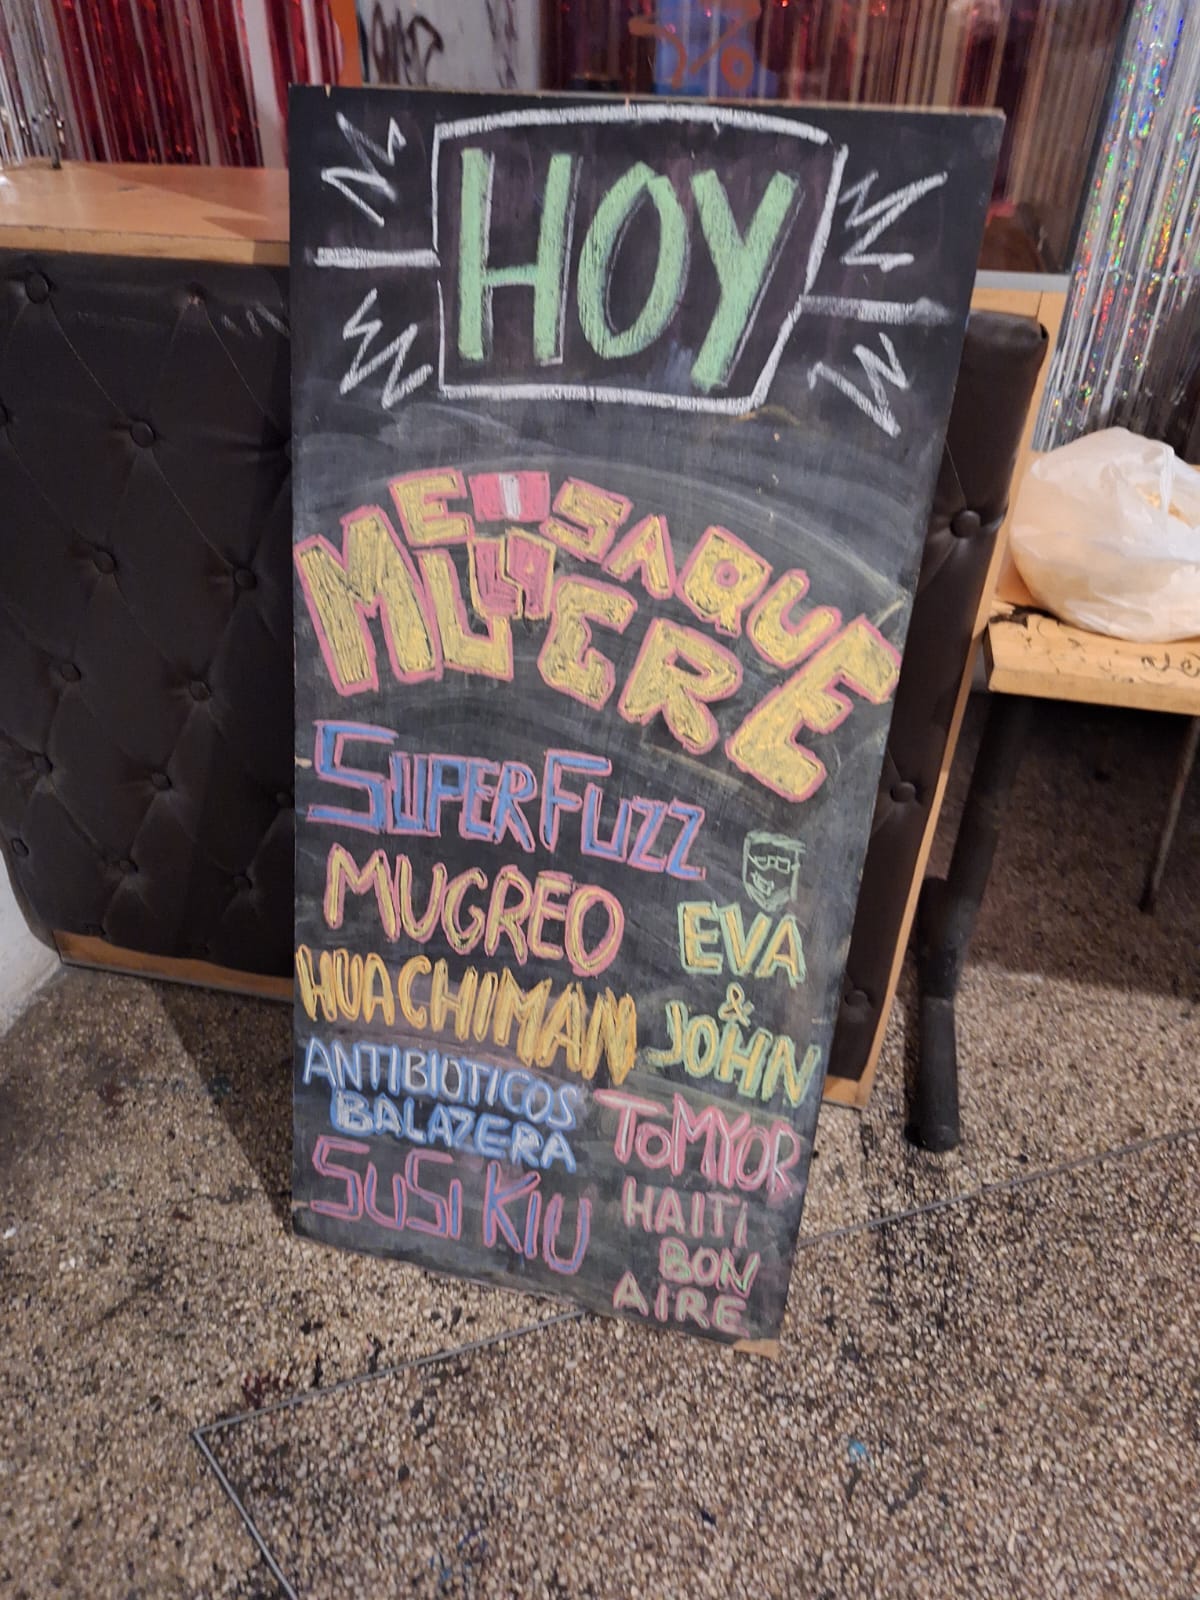 HOY
ME SAQUE
LA
MUGRE
SUPERFUZZ
MUGREO
HUACHIMAN
ANTIBIOTICOS
BALAZERA
SUSI KIU
EVA
&
JOHN
TOMYOR
HAITI
BON
AIRE